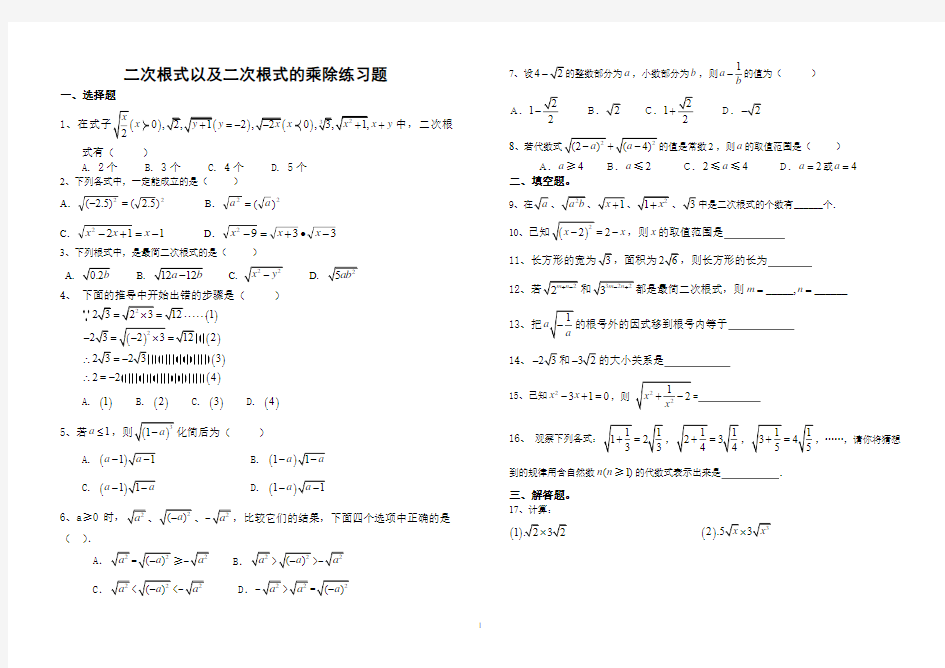 二次根式以及二次根式的乘除练习题
一、选择题
1、在式子√(x/2)(x≻0),√2,√(y+1)(y=-2),√(-2x)(x≺0),∛3,√(x²+1),x+y中，二次根
式有（ ）
A. 2个 B. 3个 C. 4个 D. 5个
2、下列各式中，一定能成立的是（ ）
A．√((-2.5)²)=(√2.5)² B．√(a²)=(√a)²
C．√(x²-2x+1)=x-1 D．√(x²-9)=√(x+3)•√(x-3)
3、下列根式中，是最简二次根式的是（ ）
A. √(0.2b) B. √(12a-12b) C. √(x²-y²) D. √(5ab²)
4、 下面的推导中开始出错的步骤是（ ）
∵2√3=√(2²×3)=√12⋯⋯(1)
-2√3=√((-2)²×3)=√12 (2)
∴2√3=-2√3 (3)
∴2=-2 (4)
A. (1) B. (2) C. (3) D. (4)
5、若a≤1，则√((1-a)³)化简后为（ ）
A. (a-1)√(a-1) B. (1-a)√(1-a)
C. (a-1)√(1-a) D. (1-a)√(a-1)
6、a≥0 时，√(a²)、√((-a)²)、-√(a²)，比较它们的结果，下面四个选项中正确的是
（ ）．
A．√(a²)=√((-a)²)≥-√(a²) B．√(a²)>√((-a)²)>-√(a²)
C．√(a²)<√((-a)²)<-√(a²) D．-√(a²)>√(a²)=√((-a)²)
7、设4-√2的整数部分为a，小数部分为b，则a-1/b的值为（ ）
A．1-√2/2 B．√2 C．1+√2/2 D．-√2
8、若代数式√((2-a)²)+√((a-4)²)的值是常数2，则a的取值范围是（ ）
A．a≥4 B．a≤2 C．2≤a≤4 D．a=2或a=4
二、填空题。
9、在√a、√(a²b)、√(x+1)、√(1+x²)、√3中是二次根式的个数有______个.
10、已知√((x-2)²)=2-x，则x的取值范围是___________
11、长方形的宽为√3，面积为2√6，则长方形的长为________
12、若√(2^(m+n-2))和√(3^(3m-2n+2))都是最简二次根式，则m=_____,n=______
13、把a√(-1/a)的根号外的因式移到根号内等于____________
14、-2√3和-3√2的大小关系是____________
15、已知x²-3x+1=0，则 √(x²+1/x²-2)=____________
16、 观察下列各式：√(1+1/3)=2√(1/3)，√(2+1/4)=3√(1/4)，√(3+1/5)=4√(1/5)，……，请你将猜想
到的规律用含自然数n(n≥1)的代数式表示出来是___________.
三、解答题。
17、计算：
(1).√2×3√2 (2).5√x×3√(x³)
1